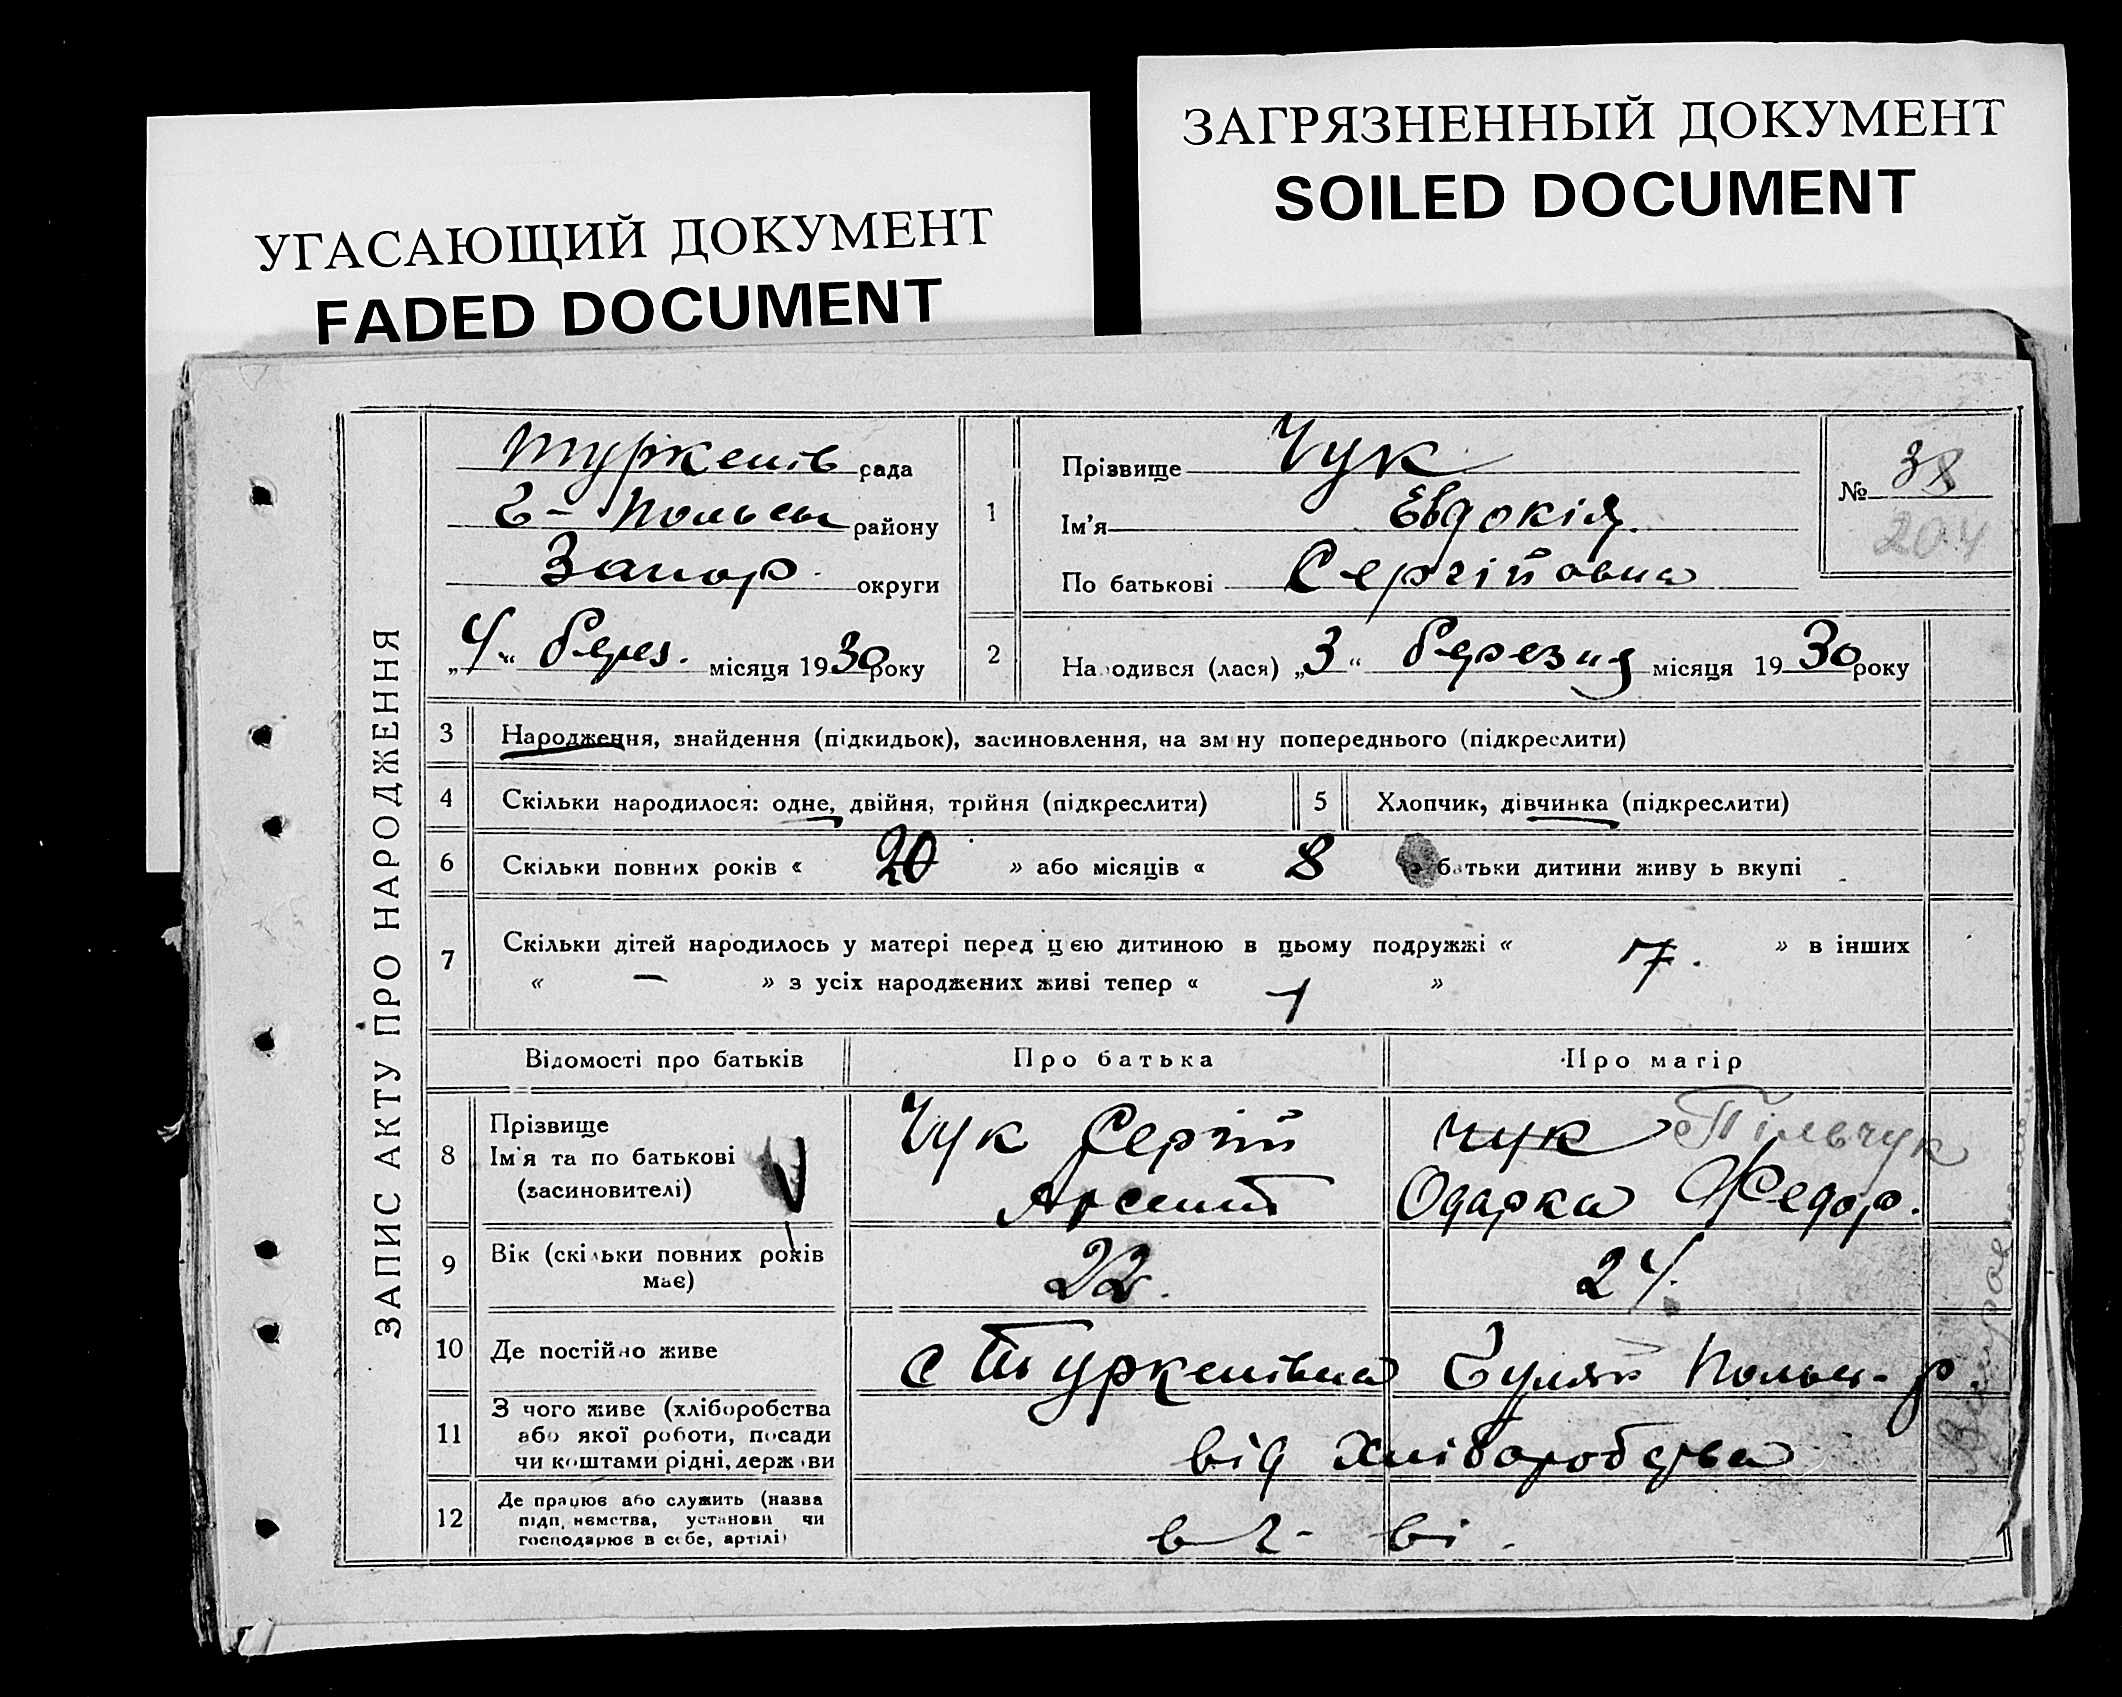 УГАСАЮЩИЙ ДОКУМЕНТ
FADED DOCUMENT
ЗАГРЯЗНЕННЫЙ ДОКУМЕНТ
SOILED DOCUMENT
ЗАПИС АКТУ ПРО НАРОДЖЕННЯ
Туркенів рада
Г-Польськ району
Запор. округи
„4“ берез. місяця 1930 року
1
Прізвище Чук
Ім'я Евдокія.
По батькові Сергіївна
№ 38
204
2 Народився (лася) „3“ березня місяця 1930 року
3 Народження, знайдення (підкидьок), засиновлення, на зміну попереднього (підкреслити)
4 Скільки народилося: одне, двійня, трійня (підкреслити)
5 Хлопчик, дівчинка (підкреслити)
6 Скільки повних років « 20 » або місяців « 8 » батьки дитини живуть вкупі
7 Скільки дітей народилось у матері перед цією дитиною в цьому подружжі « » в інших
« — » з усіх народжених живі тепер « 1 »
Відомості про батьків Про батька Про матір
8 Прізвище
Ім'я та по батькові
(засиновителі)
Чук Сергій
Арсент
Чук Пільчук
Одарка Федор.
9 Вік (скільки повних років
має)
22. 24.
10 Де постійно живе
с Туркенівка Гуляй Польськ. р.
11 З чого живе (хліборобства
або якої роботи, посади
чи коштами рідні, держави
від хліборобства
12 Де працює або служить (назва
підприємства, установи чи
господарює в себе, артілі)
в г-ві.